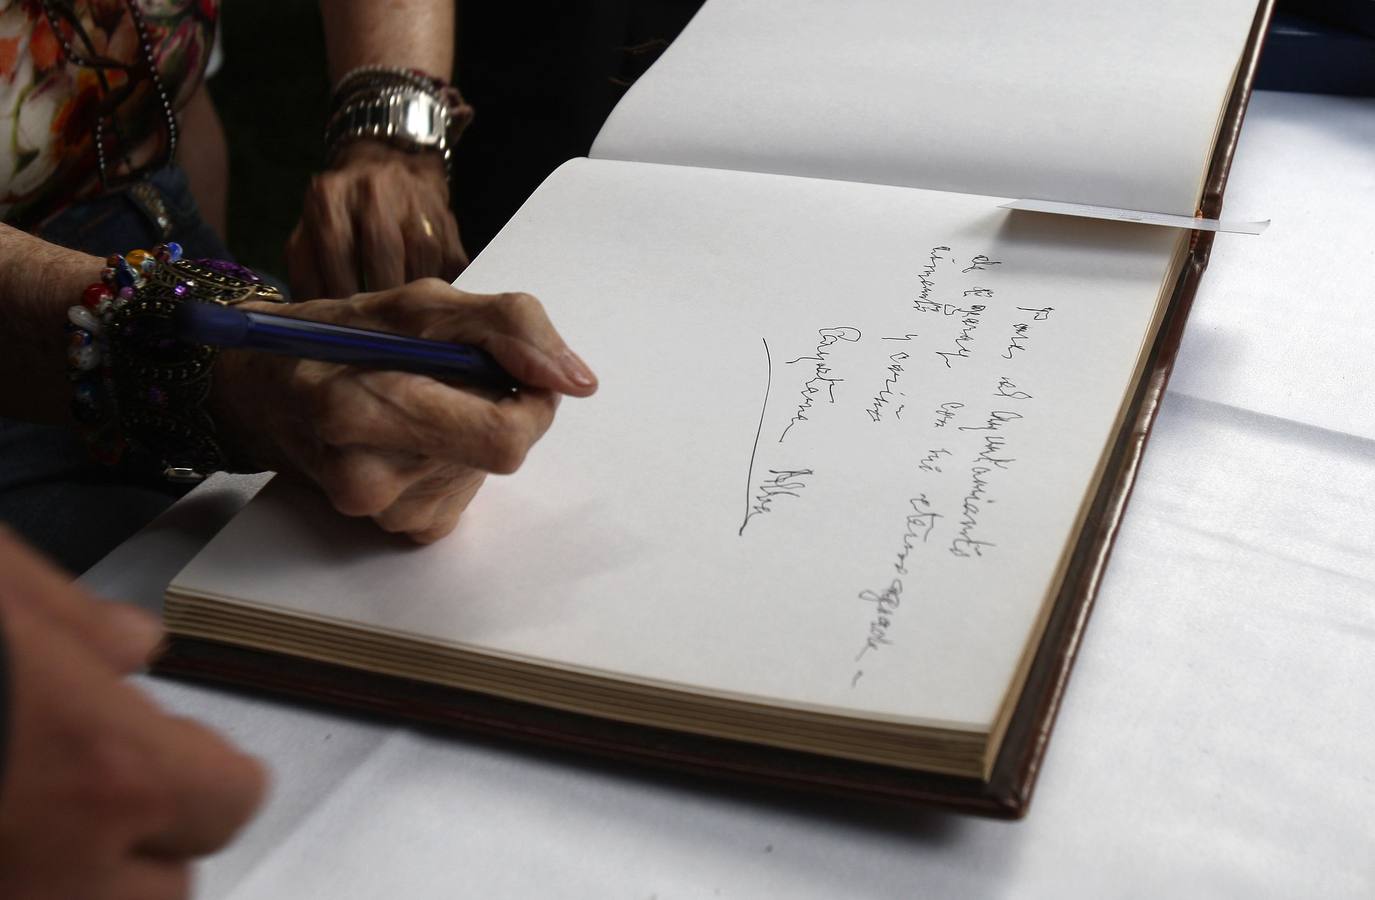 Para el Ayuntamiento
de
con mi eterno agrade-
cimiento
y cariño
Cayetana Alba